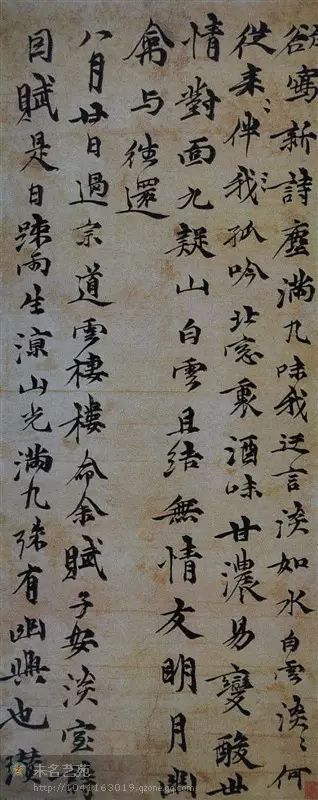 欲寫新詩塵滿几味我迂言淡如水白雲淡〻何
從来〻伴我孤吟北窓裏酒味甘濃易變酸世
情對面九疑山白雲且結無情友明月幽
禽与往還
八月廿日過宗道雲棲樓命余賦子安淡室
因賦是日踈雨生涼山光滿几殊有幽興也瓚
未名艺苑
http://1041163019.qzone.qq.com